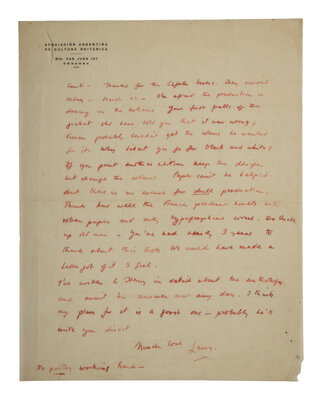 ASOCIACIÓN ARGENTINA
DE CULTURA BRITÁNICA
BVD. SAN JUAN 137
CORDOBA
Thanks for the books. They arrived
today — I'm afraid the production is
in the extreme. Your first pulls of the
jacket should have told you that it was wrong;
probably couldn't get the colours he wanted
for it. Why didn't you go for black and white?
If you print another edition keep the design
but change the colours. Paper can't be helped.
But there is no excuse for production.
Think how well the French produce books with
rotten paper and only typographic covers. Do buck
up old man — You've had nearly 3 years to
think about this book. We could have made a
better job of it I feel.
I've written to Henry in detail about the anthology
and await his answer now any days. I think
my plan for it is a good one — probably he'll
write you direct
Much love Larry.
No poetry working here —